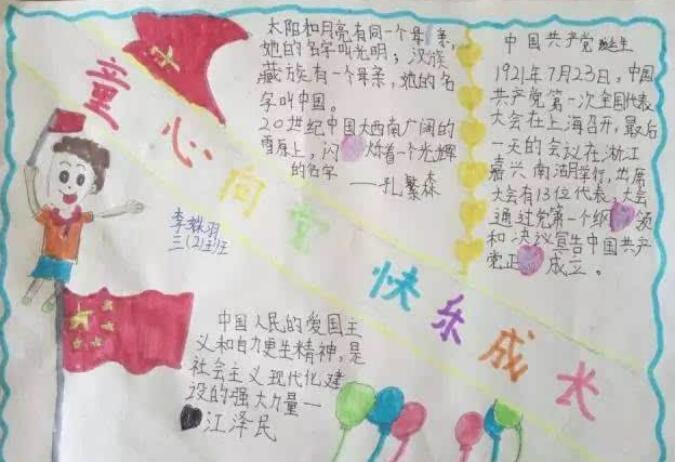 童心向党 快乐成长
太阳和月亮有同一个母亲,
她的名字叫光明；汉族
藏族有一个母亲，她的名
字叫中国。
20世纪中国大西南广阔的
雪原上，闪 炸着一个光辉
的名字
——孔繁森
中国共产党 诞生
1921年7月23日，中国
共产党第一次全国代表
大会在上海召开，最后
一天的会议在浙江
嘉兴南湖举行，出席
大会有13位代表，大会
通过党第一个纲 领
和决议宣告中国共产
党正 成立。
李 羽
三(2)班
中国人民的爱国主
义和自力更生精神，是
社会主义现代化建
设的强大力量—
江泽民